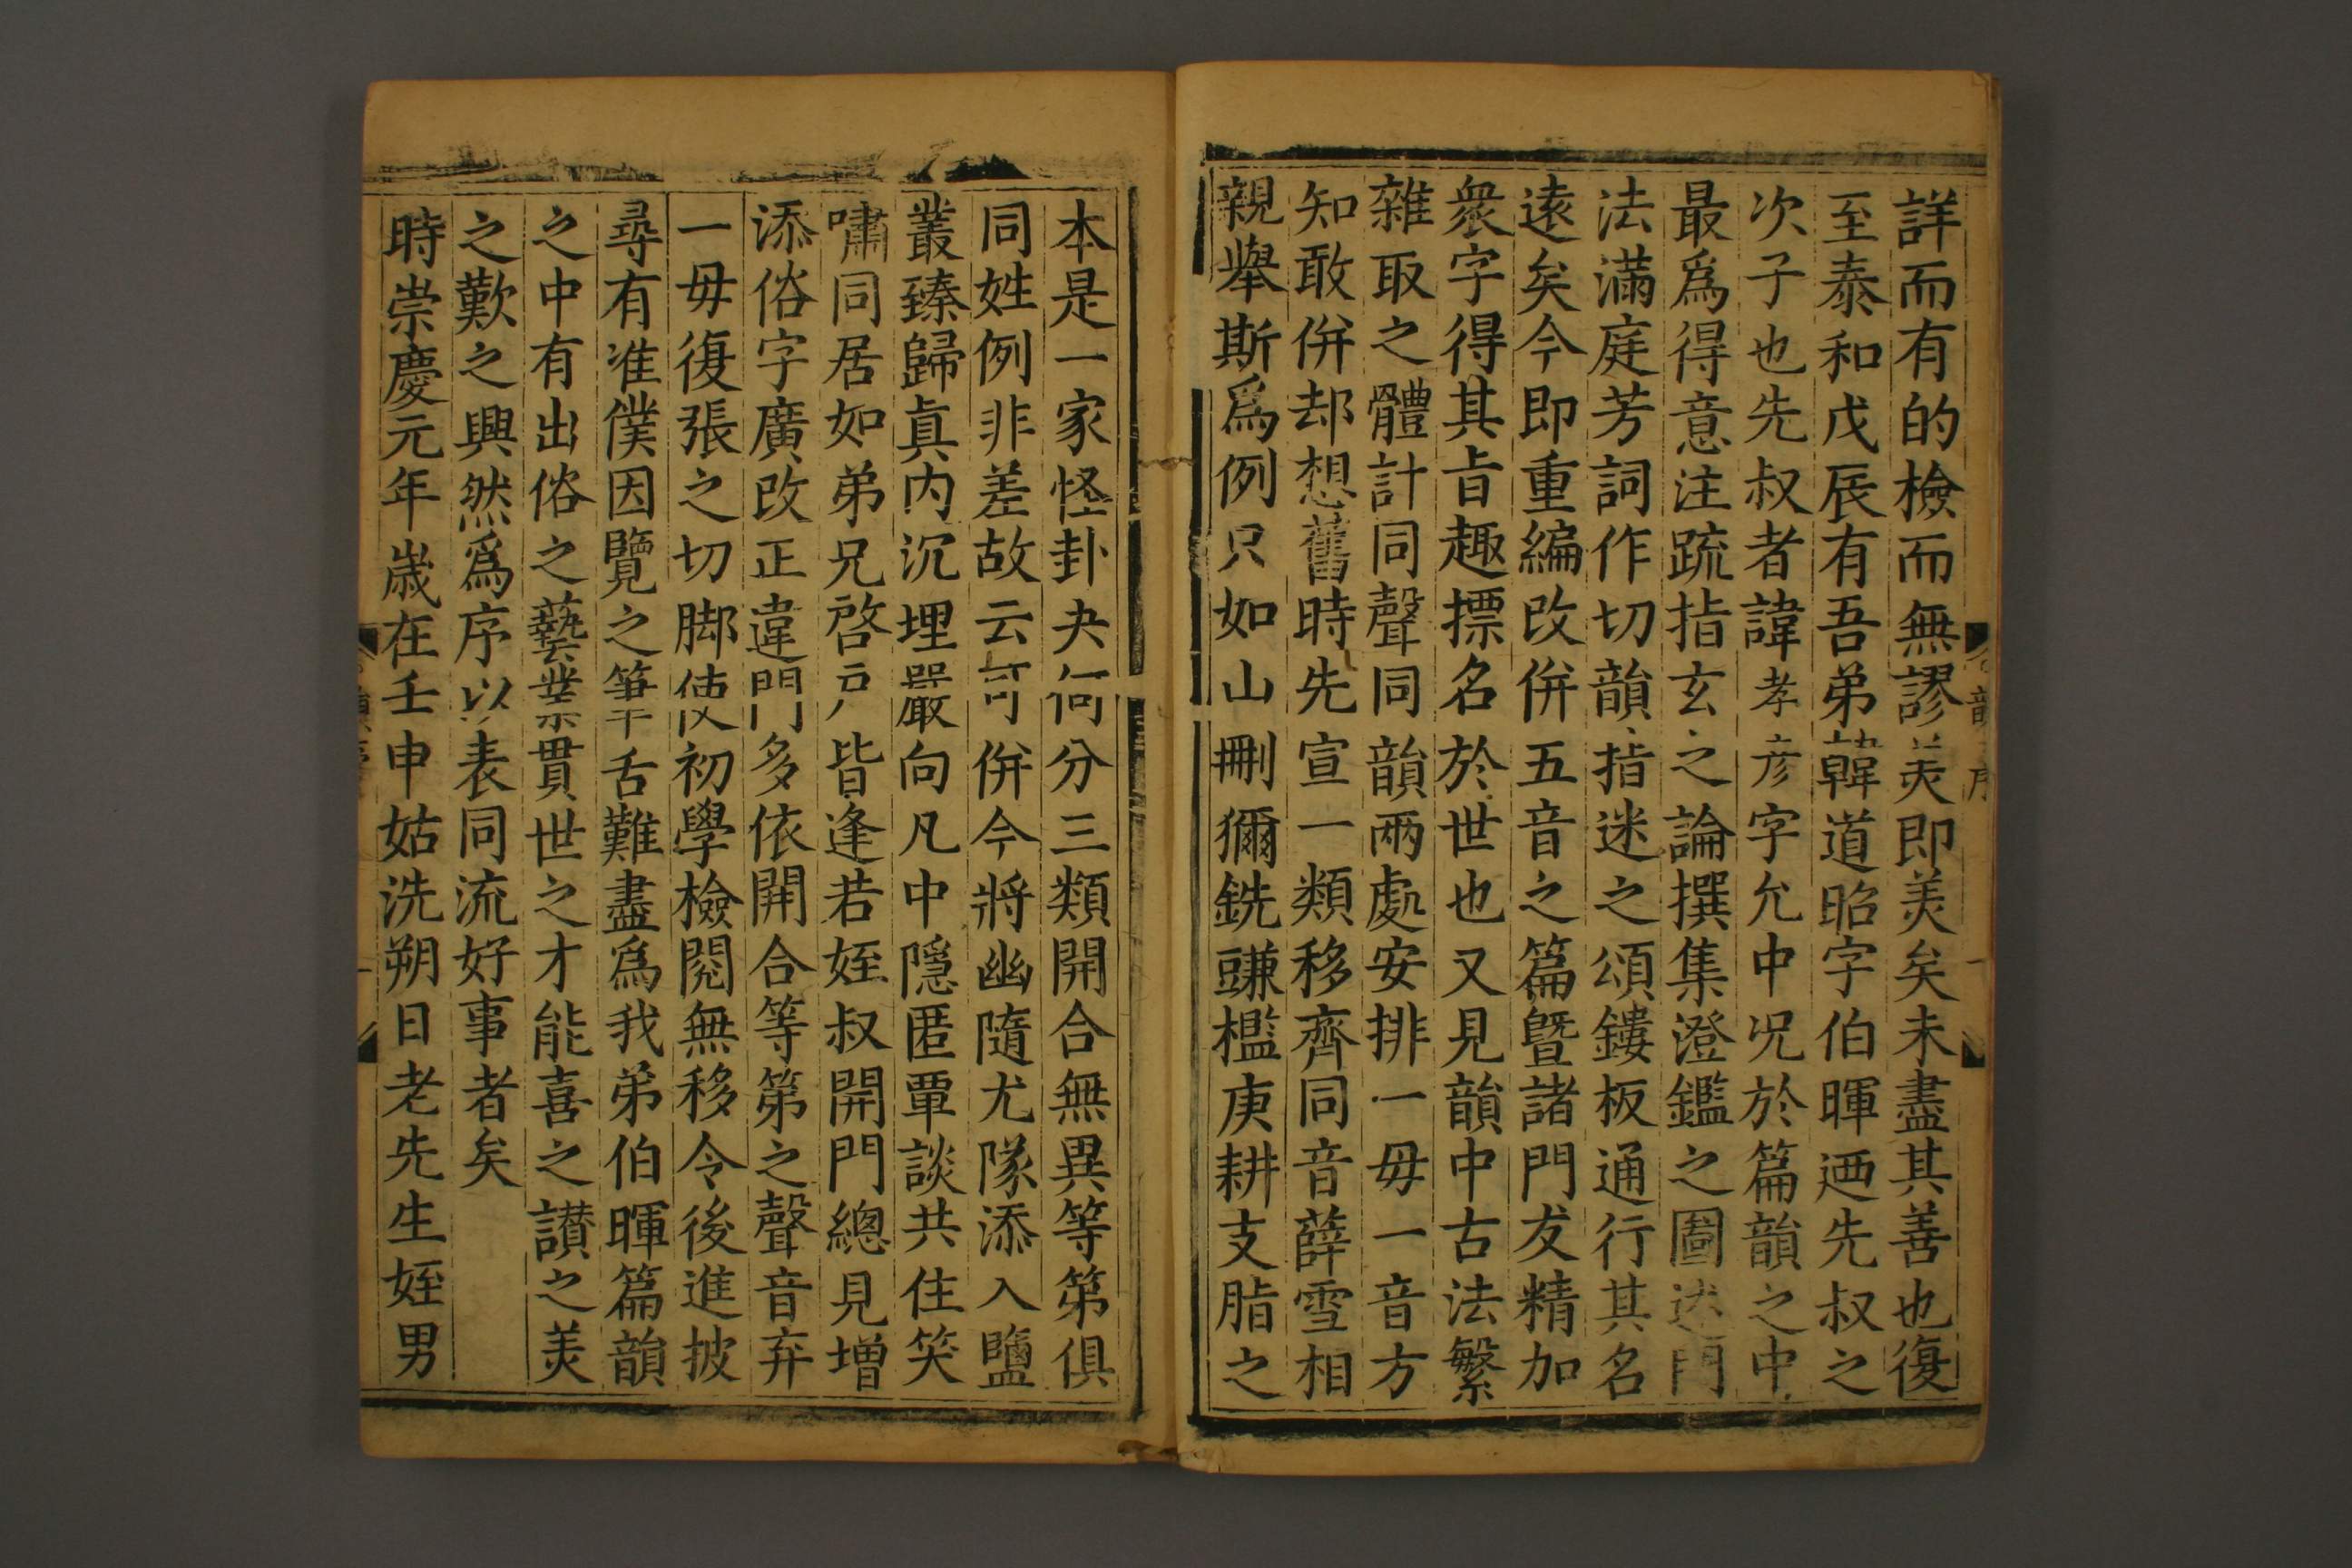 詳而有的檢而無謬美即美矣未盡其善也復
至泰和戊辰有吾弟韓道昭字伯暉迺先叔之
次子也先叔者諱孝彦字允中況於篇韻之中
最爲得意注疏指玄之論撰集澄鑑之圖述門
法滿庭芳詞作切韻指迷之頌鏤板通行其名
遠矣今即重編改併五音之篇暨諸門友精加
衆字得其㫖趣摽名於世也又見韻中古法繁
雜取之體計同聲同韻兩處安排一毋一音方
知敢併却想舊時先宣一類移齊同音薛雪相
親舉斯爲例只如山刪獮銑豏檻庚耕支脂之
本是一家怪卦夬何分三類開合無異等第俱
同姓例非差故云可併今將幽隨尤隊添入鹽
叢臻歸真内沉埋嚴向凡中隱匿覃談共住笑
嘯同居如弟兄啓戸皆逢若姪叔開門總見增
添俗字廣改正違門多依開合等第之聲音弃
一毋復張之切脚使初學檢閱無移令後進披
尋有准僕因覽之筆舌難盡爲我弟伯暉篇韻
之中有出俗之藝業貫世之才能喜之讃之美
之歎之興然爲序以表同流好事者矣
時崇慶元年歲在壬申姑洗朔日老先生姪男